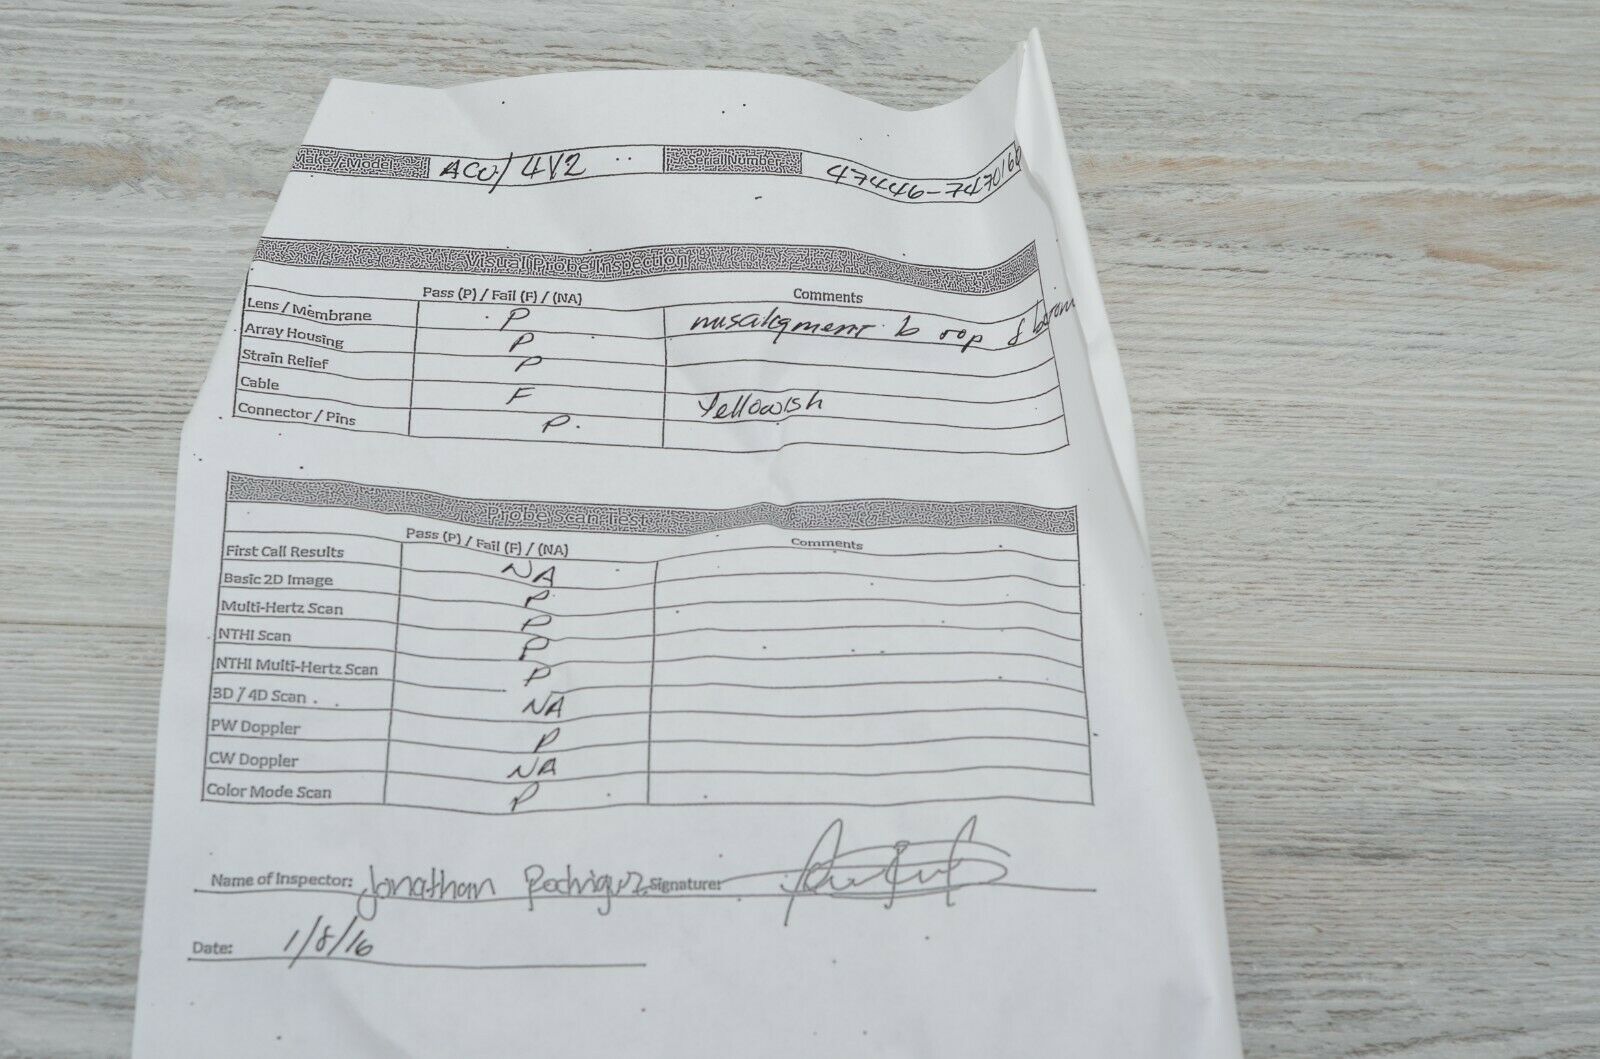 Make / Model: ACU/ 4V2 Serial Number: 47446-7470166
Visual Probe Inspection
Pass (P) / Fail (F) / (NA) Comments
Lens / Membrane P
Array Housing P
Strain Relief P
Cable F Yellowish
Connector / Pins P.
Probe Scan Test
Pass (P) / Fail (F) / (NA) Comments
First Call Results NA
Basic 2D Image P
Multi-Hertz Scan P
NTHI Scan P
NTHI Multi-Hertz Scan P
3D / 4D Scan NA
PW Doppler P
CW Doppler NA
Color Mode Scan P
Name of Inspector: Jonathan Signature:
Date: 1/8/16